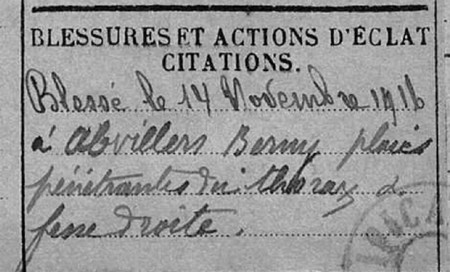 BLESSURES ET ACTIONS D'ÉCLAT
CITATIONS.
Blessé le 14 Novembre 1916
à Abvillers Berny plaies
pénétrantes du thorax &
fesse droite.